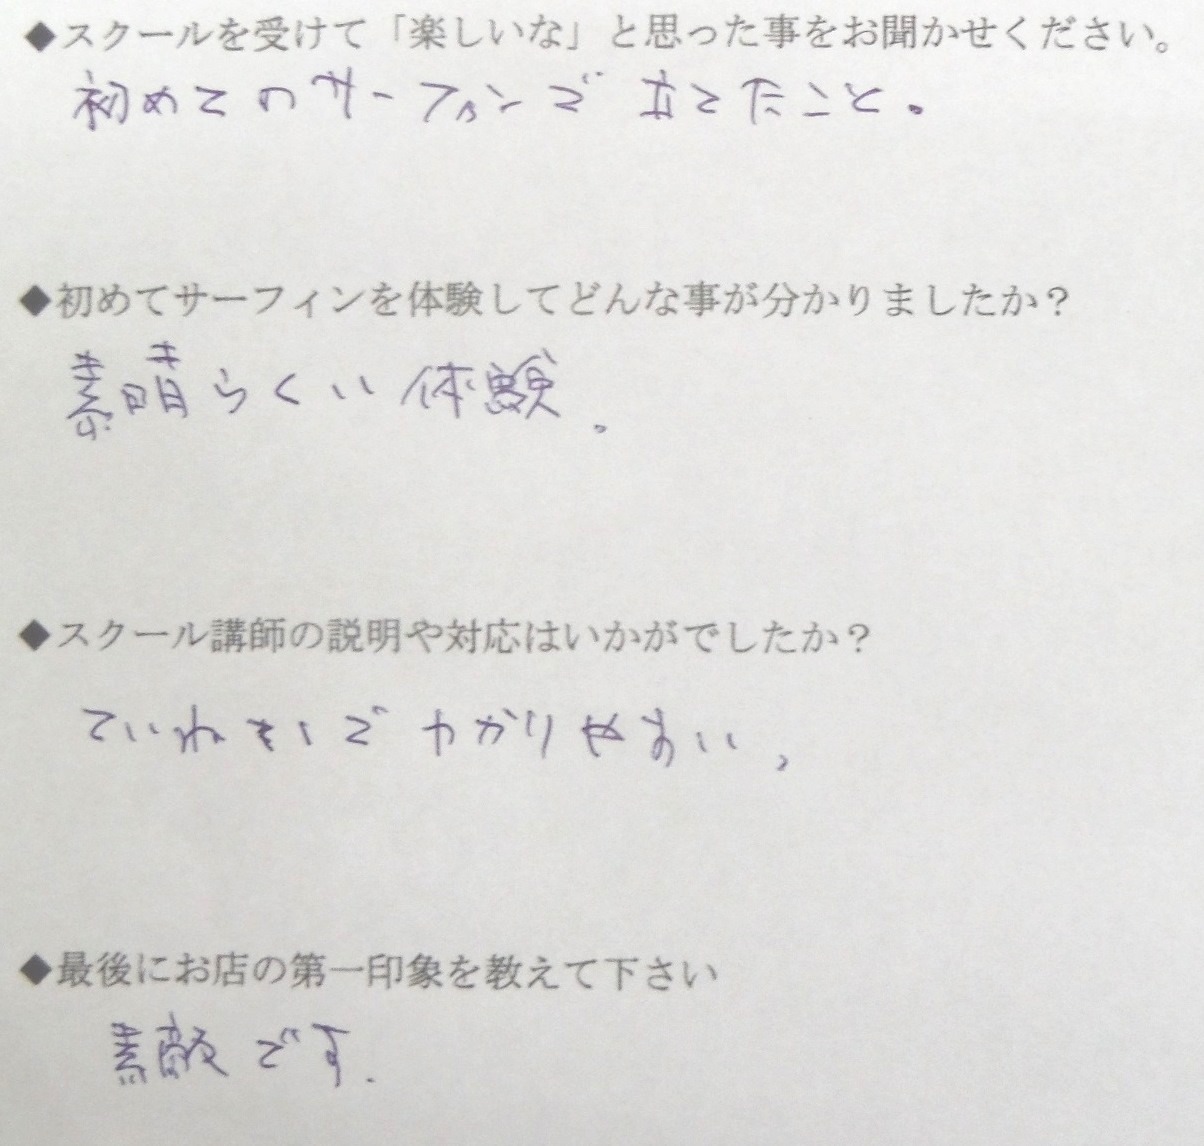 ◆スクールを受けて「楽しいな」と思った事をお聞かせください。
初めてのサーフィンで立てたこと。
◆初めてサーフィンを体験してどんな事が分かりましたか？
素晴らしい体験。
◆スクール講師の説明や対応はいかがでしたか？
ていねいでわかりやすい。
◆最後にお店の第一印象を教えて下さい
素敵です.